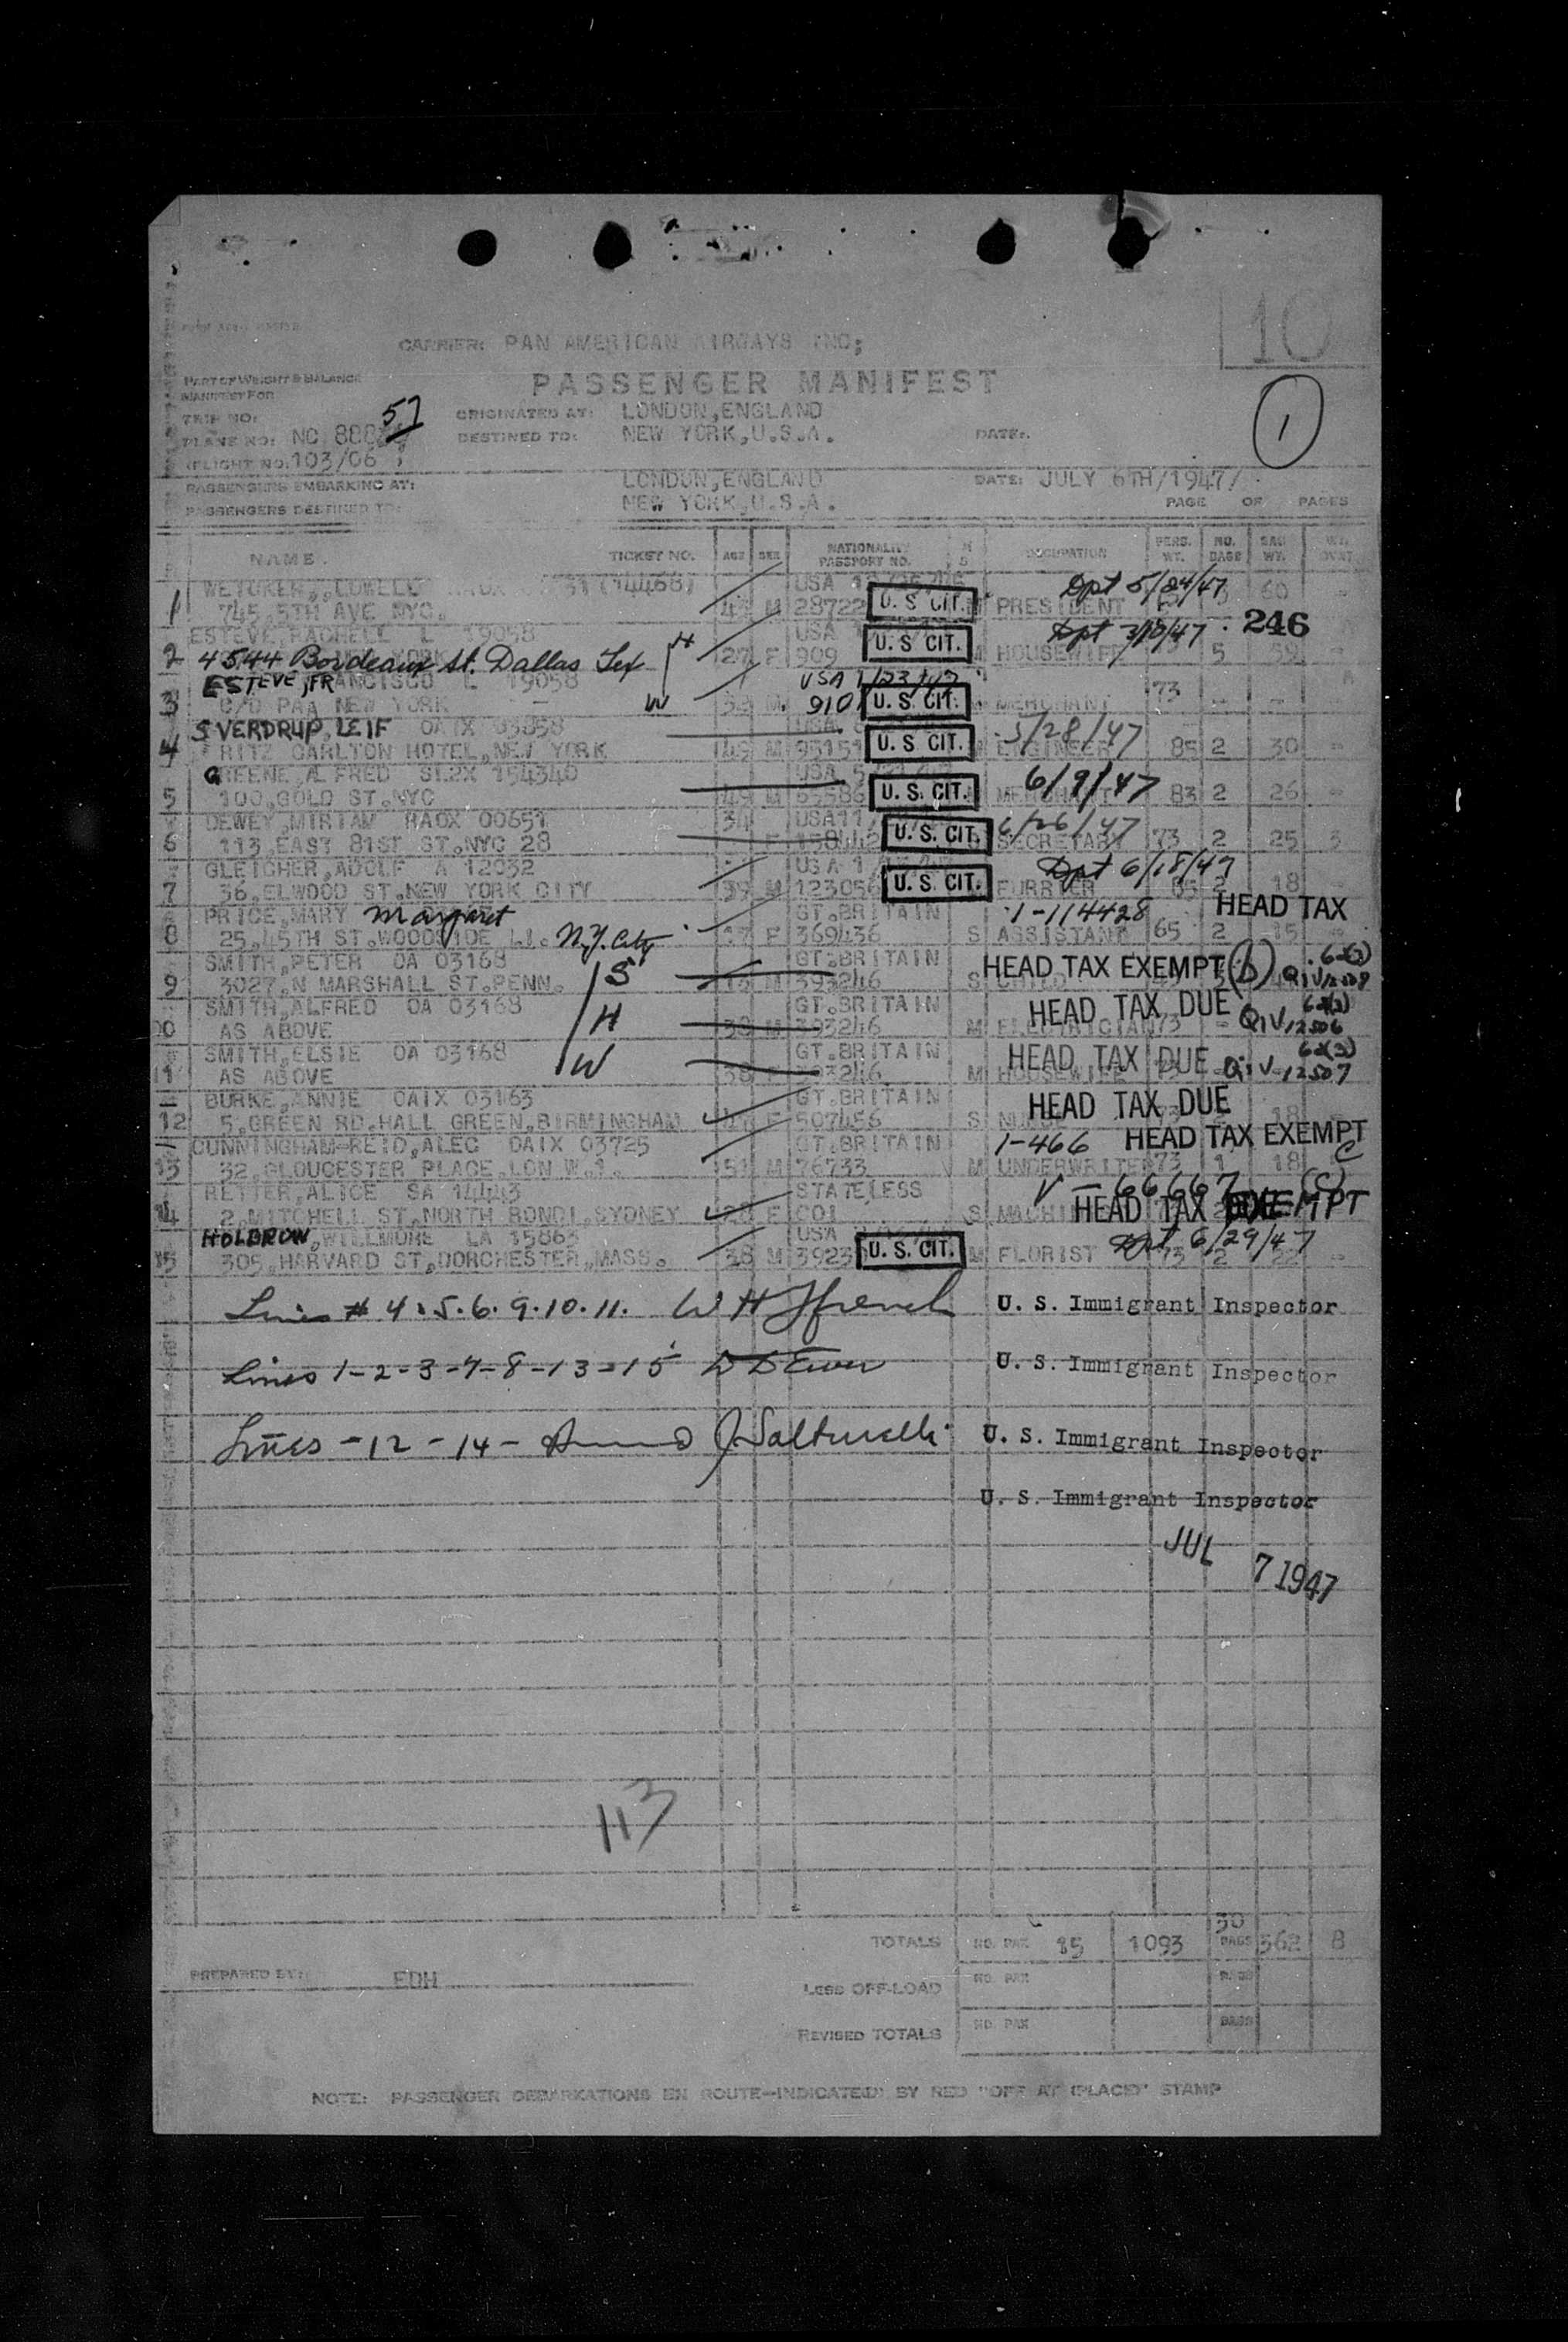 10
CARRIER: PAN AMERICAN AIRWAYS INC;
PART OF WEIGHT & BALANCE
MANIFEST FOR
PASSENGER MANIFEST
1
TRIP NO: 57
ORIGINATED AT: LONDON,ENGLAND
PLANE NO: NC 888
DESTINED TO: NEW YORK,U.S.A. DATE:
FLIGHT NO: 103/06
PASSENGERS EMBARKING AT: LONDON,ENGLAND DATE: JULY 6TH/1947/
PASSENGERS DESTINED TO: NEW YORK,U.S.A. PAGE OF PAGES
NAME. TICKET NO. AGE SEX NATIONALITY PASSPORT NO. M S OCCUPATION PERS. WT. NO. BAGS BAG WT.
LOWELL (14468) USA Dpt 5/24/47
1 745.5TH AVE NYC. 43 M 28722 U. S CIT. M PRESIDENT 60
ESTEVE,RACHELL L 19058 H USA Dpt 246
2 4544 Bordeaux St. Dallas Tex 27 F 909 U. S CIT. M HOUSEWIFE 5 59
ESTEVE,FRANCISCO L 19058 USA 1/23/47
3 C/O PAA NEW YORK W M 910 U. S. CIT. MERCHANT 73
SVERDRUP, LEIF OAIX 03858 USA 5/28/47
4 RITZ CARLTON HOTEL,NEW YORK 49 M 95151 U. S CIT. ENGINEER 85 2 30
GREENE,ALFRED ST2X 154340 USA 6/9/47
5 100,GOLD ST.NYC 49 M 65586 U. S. CIT. MERCHANT 83 2 26
DEWEY,MIRIAM HAOX 00651 34 USA 6/26/47
6 113,EAST 81ST ST.NYC 28 F 158442 U. S. CIT. SECRETARY 73 2 25 3
GLETCHER,ADOLF A 12032 USA Dpt 6/18/47
7 36,ELWOOD ST.NEW YORK CITY 39 M 123056 U. S. CIT. FURRIER 85 2 18
PRICE,MARY Margaret GT.BRITAIN 1-114428 HEAD TAX
8 25,45TH ST.WOODSIDE L.I. N.Y. City F 369436 S ASSISTANT 65 2 15
SMITH,PETER OA 03168 S GT.BRITAIN HEAD TAX EXEMPT (b)
9 3027,N MARSHALL ST.PENN. M 393246 S CHILD
SMITH,ALFRED OA 03168 H GT.BRITAIN HEAD TAX DUE
AS ABOVE 38 M 393246 M ELECTRICIAN 73 QIV 12506
SMITH,ELSIE OA 03168 W GT.BRITAIN HEAD TAX DUE
11 AS ABOVE 38 F 393246 M HOUSEWIFE QIV-12507
BURKE,ANNIE OAIX 03163 GT.BRITAIN HEAD TAX DUE
12 5,GREEN RD.HALL GREEN,BIRMINGHAM F 507456 S 18
CUNNINGHAM-REID,ALEC OAIX 03725 GT.BRITAIN 1-466 HEAD TAX EXEMPT C
13 32,GLOUCESTER PLACE,LON W.1. 51 M 76733 M UNDERWRITER 73 1 18
ALICE SA 14443 STATELESS V-66667 (C)
14 2,MITCHELL ST.NORTH BONDI,SYDNEY F COI S HEAD TAX EXEMPT
HOLBROW,WILLMORE LA 15863 USA Dpt 6/29/47
15 305,HARVARD ST.DORCHESTER,MASS. 38 M 3923 U. S. CIT. M FLORIST 73 2
Lines # 4.5.6.9.10.11. W H French U. S. Immigrant Inspector
Lines 1-2-3-7-8-13-15 U. S. Immigrant Inspector
Lines -12-14- U. S. Immigrant Inspector
U. S. Immigrant Inspector
JUL 7 1947
113
TOTALS NO. PAX 15 1093 30 BAGS 362 8
PREPARED BY: EDH
LESS OFF-LOAD NO. PAX BAGS
REVISED TOTALS NO. PAX BAGS
NOTE: PASSENGER DEBARKATIONS EN ROUTE-INDICATED BY RED "OFF AT (PLACE)" STAMP